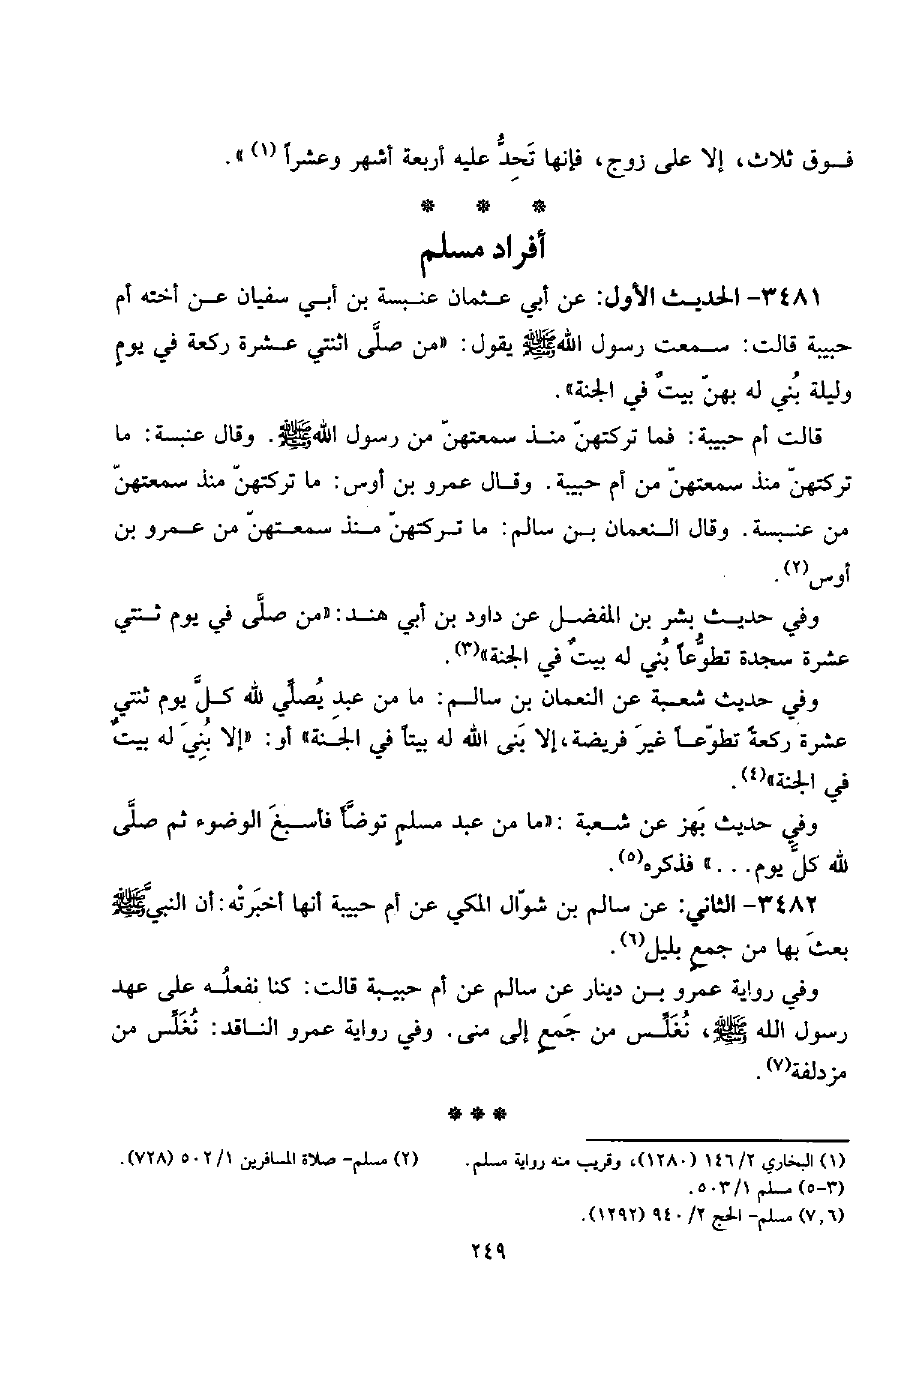 فوق ثلاث، إلا على زوج، فإنها تَحِدُّ عليه أربعة أشهر وعشراً (١) ».
* * *
أفراد مسلم
٣٤٨١- الحديث الأول: عن أبي عثمان عنبسة بن أبي سفيان عن أخته أم
حبيبة قالت: سمعت رسول الله ﷺ يقول: «من صلَّى اثنتي عشرة ركعة في يومٍ
وليلة بُني له بهنّ بيتٌ في الجنة».
قالت أم حبيبة: فما تركتهنّ منذ سمعتهنّ من رسول الله ﷺ. وقال عنبسة: ما
تركتهنّ منذ سمعتهنّ من أم حبيبة. وقال عمرو بن أوس: ما تركتهنّ منذ سمعتهنّ
من عنبسة. وقال النعمان بن سالم: ما تركتهنّ منذ سمعتهنّ من عمرو بن
أوس(٢).
وفي حديث بشر بن المفضل عن داود بن أبي هند: «من صلَّى في يوم ثنتي
عشرة سجدة تطوُّعاً بُني له بيتٌ في الجنة»(٣).
وفي حديث شعبة عن النعمان بن سالم: ما من عبدٍ يُصلِّي لله كلَّ يوم ثنتي
عشرة ركعةً تطوّعاً غيرَ فريضة، إلا بَنى الله له بيتاً في الجنة» أو: «إلا بُنِيَ له بيتٌ
في الجنة»(٤).
وفي حديث بَهز عن شعبة : «ما من عبد مسلمٍ توضَّأ فأسبغَ الوضوء ثم صلَّى
لله كلَّ يوم...» فذكره(٥).
٣٤٨٢- الثاني: عن سالم بن شوّال المكي عن أم حبيبة أنها أخبَرَتْه: أن النبيَّ ﷺ
بعثَ بها من جمعٍ بليل(٦).
وفي رواية عمرو بن دينار عن سالم عن أم حبيبة قالت: كنا نفعلُه على عهد
رسول الله ﷺ، نُغَلِّس من جَمعٍ إلى منى. وفي رواية عمرو الناقد: نُغَلِّس من
مزدلفة(٧).
* * *
(١) البخاري ٢/ ١٤٦ (١٢٨٠)، وقريب منه رواية مسلم. (٢) مسلم- صلاة المسافرين ١/ ٥٠٢ (٧٢٨).
(٣-٥) مسلم ١/ ٥٠٣.
(٧,٦) مسلم- الحج ٢/ ٩٤٠ (١٢٩٢).
٢٤٩